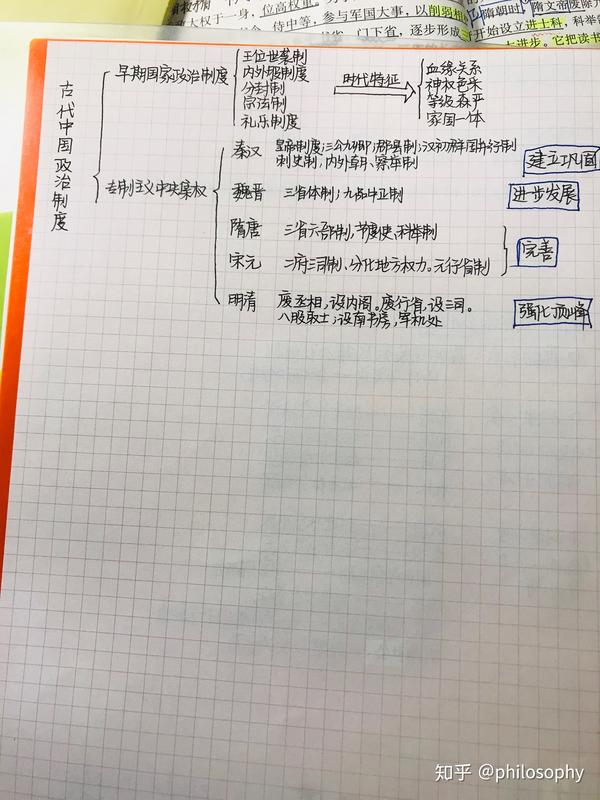 大权于一身，位高权重。
侍中等，参与军国大事，以削弱相
门下省，逐步形成三
隋朝时，隋文帝废除
开始设立进士科，科举
大进步。它把读书
古代中国政治制度
早期国家政治制度
王位世袭制
内外服制度
分封制
宗法制
礼乐制度
时代特征
血缘关系
神权色采
等级森严
家国一体
专制主义中央集权
秦汉 皇帝制度;三公九卿;郡县制;汉初郡国并行制
刺史制,内外朝、察举制
建立巩固
魏晋 三省体制;九品中正制
进步发展
隋唐 三省六部制,节度使、科举制
宋元 二府三司制、分化地方权力。元行省制
完善
明清 废丞相,设内阁。废行省,设三司。
八股取士;设南书房,军机处
强化顶峰
知乎 @philosophy